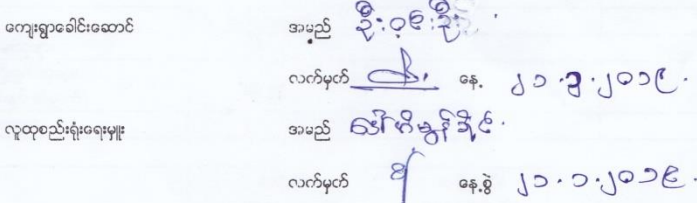 ကျေးရွာခေါင်းဆောင် အမည် ဦးဝင်းဦး
လက်မှတ် နေ့ ၂၁.၃.၂၀၁၉.
လူထုစည်းရုံးရေးမှူး အမည် ဒေါ်
လက်မှတ် နေ့စွဲ ၂၁.၁.၂၀၁၉.